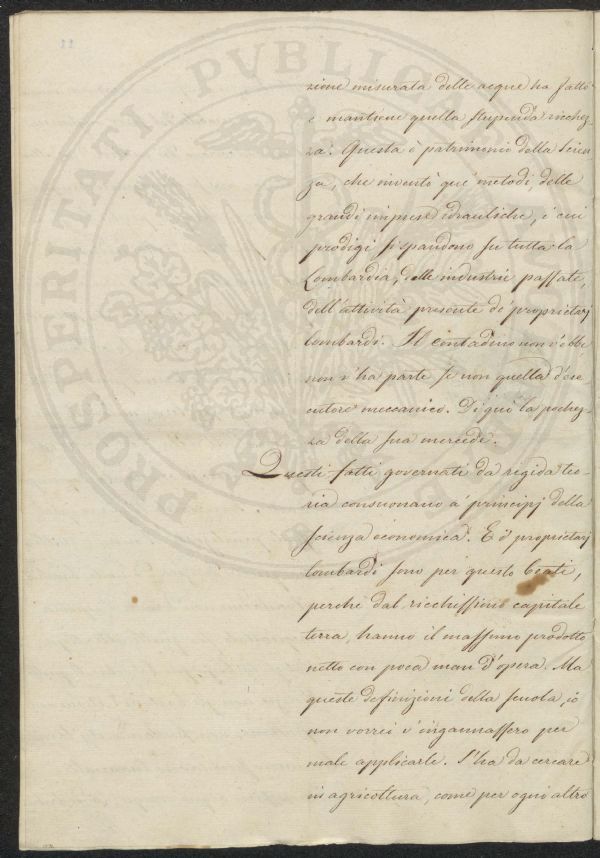 11
PROSPERITATI PVBLICAE
zione misurata delle acque ha fatto
e mantiene quella stupenda ricchez-
za. Questa è patrimonio della Scien-
za, che inventò que' metodi, delle
grandi imprese idrauliche, i cui
prodigi si spandono su tutta la
Lombardia, delle industrie passate,
dell'attività presente de' proprietarj
lombardi. Il contadino non v'ebbe
non v'ha parte se non quella d'ese-
cutore meccanico. Di qui la pochez-
za della sua mercede.
Questi fatti governati da rigida teo-
ria consuonano a' principj della
scienza economica. E i proprietarj
lombardi sono per questo beati,
perchè dal ricchissimo capitale
terra, hanno il massimo prodotto
netto con poca man d'opera. Ma
queste definizioni della scuola, io
non vorrei v'ingannassero per
male applicarle. S'ha da cercare
in agricoltura, come per ogni altro